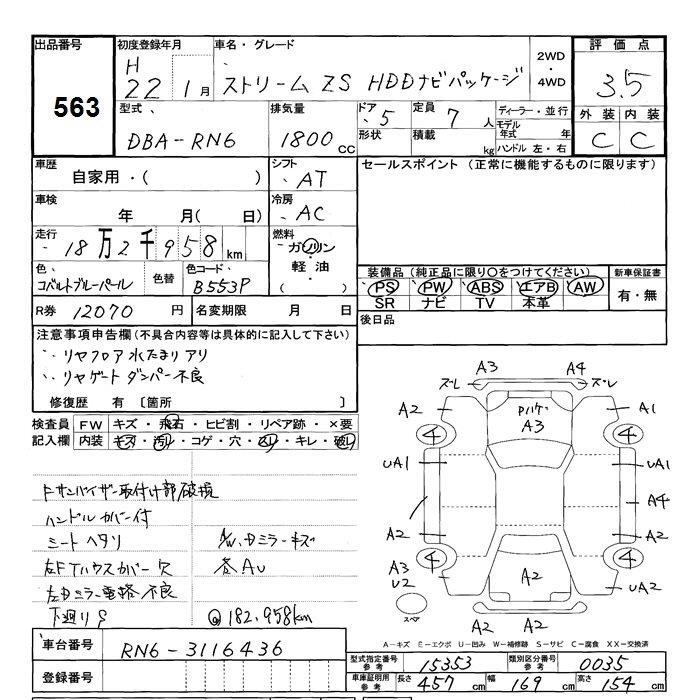 出品番号
563
初度登録年月
H
22 1月
車名・グレード
ストリーム ZS HDDナビパッケージ
2WD
・
4WD
評価点
3.5
外装 内装
C C
型式
DBA-RN6
排気量
1800 CC
ドア 5
形状
定員 7 人
積載 kg
ディーラー・並行
モデル
年式 年
ハンドル 左・右
車歴
自家用・( )
シフト
AT
セールスポイント (正常に機能するものに限ります)
車検
年 月( 日)
冷房
AC
走行
18万2千958km
燃料
ガソリン
軽油
色
コバルトブルーパール
色替
色コード
B553P
装備品 (純正品に限り○をつけてください)
PS PW ABS エアB AW
SR ナビ TV 本革
新車保証書
有・無
R券 12070 円
名変期限 月 日
後日品
注意事項申告欄(不具合内容等は具体的に記入して下さい)
リヤフロア 水たまりアリ
リヤゲートダンパー不良
修復歴 有 [箇所 ]
検査員
記入欄
FW キズ・飛石・ヒビ割・リペア跡・×要
内装 キズ・汚れ・コゲ・穴・凹・キレ・破れ
Fサンバイザー取付け部破損
ハンドルカバー付
シートヘタリ
A/W、ドミラーキズ
左Fタハウスカバー欠
各AU
左ドミラー電格不良
下廻りS
@182,958km
A3 A4
ズレ ズレ
A2 Pハゲ A1
A3
4 4
UA1 UA1
A4
A2 A2
4 4
A3
U2 A2 UA2
スペア
A2 A2
A-キズ E-エクボ U-凹み W-補修跡 S-サビ C-腐食 XX-交換済
車台番号 RN6-3116436
登録番号
型式指定番号
参考
15353
類別区分番号
参考
0035
車庫証明用
参考
長さ 457 cm 幅 169 cm 高さ 154 cm